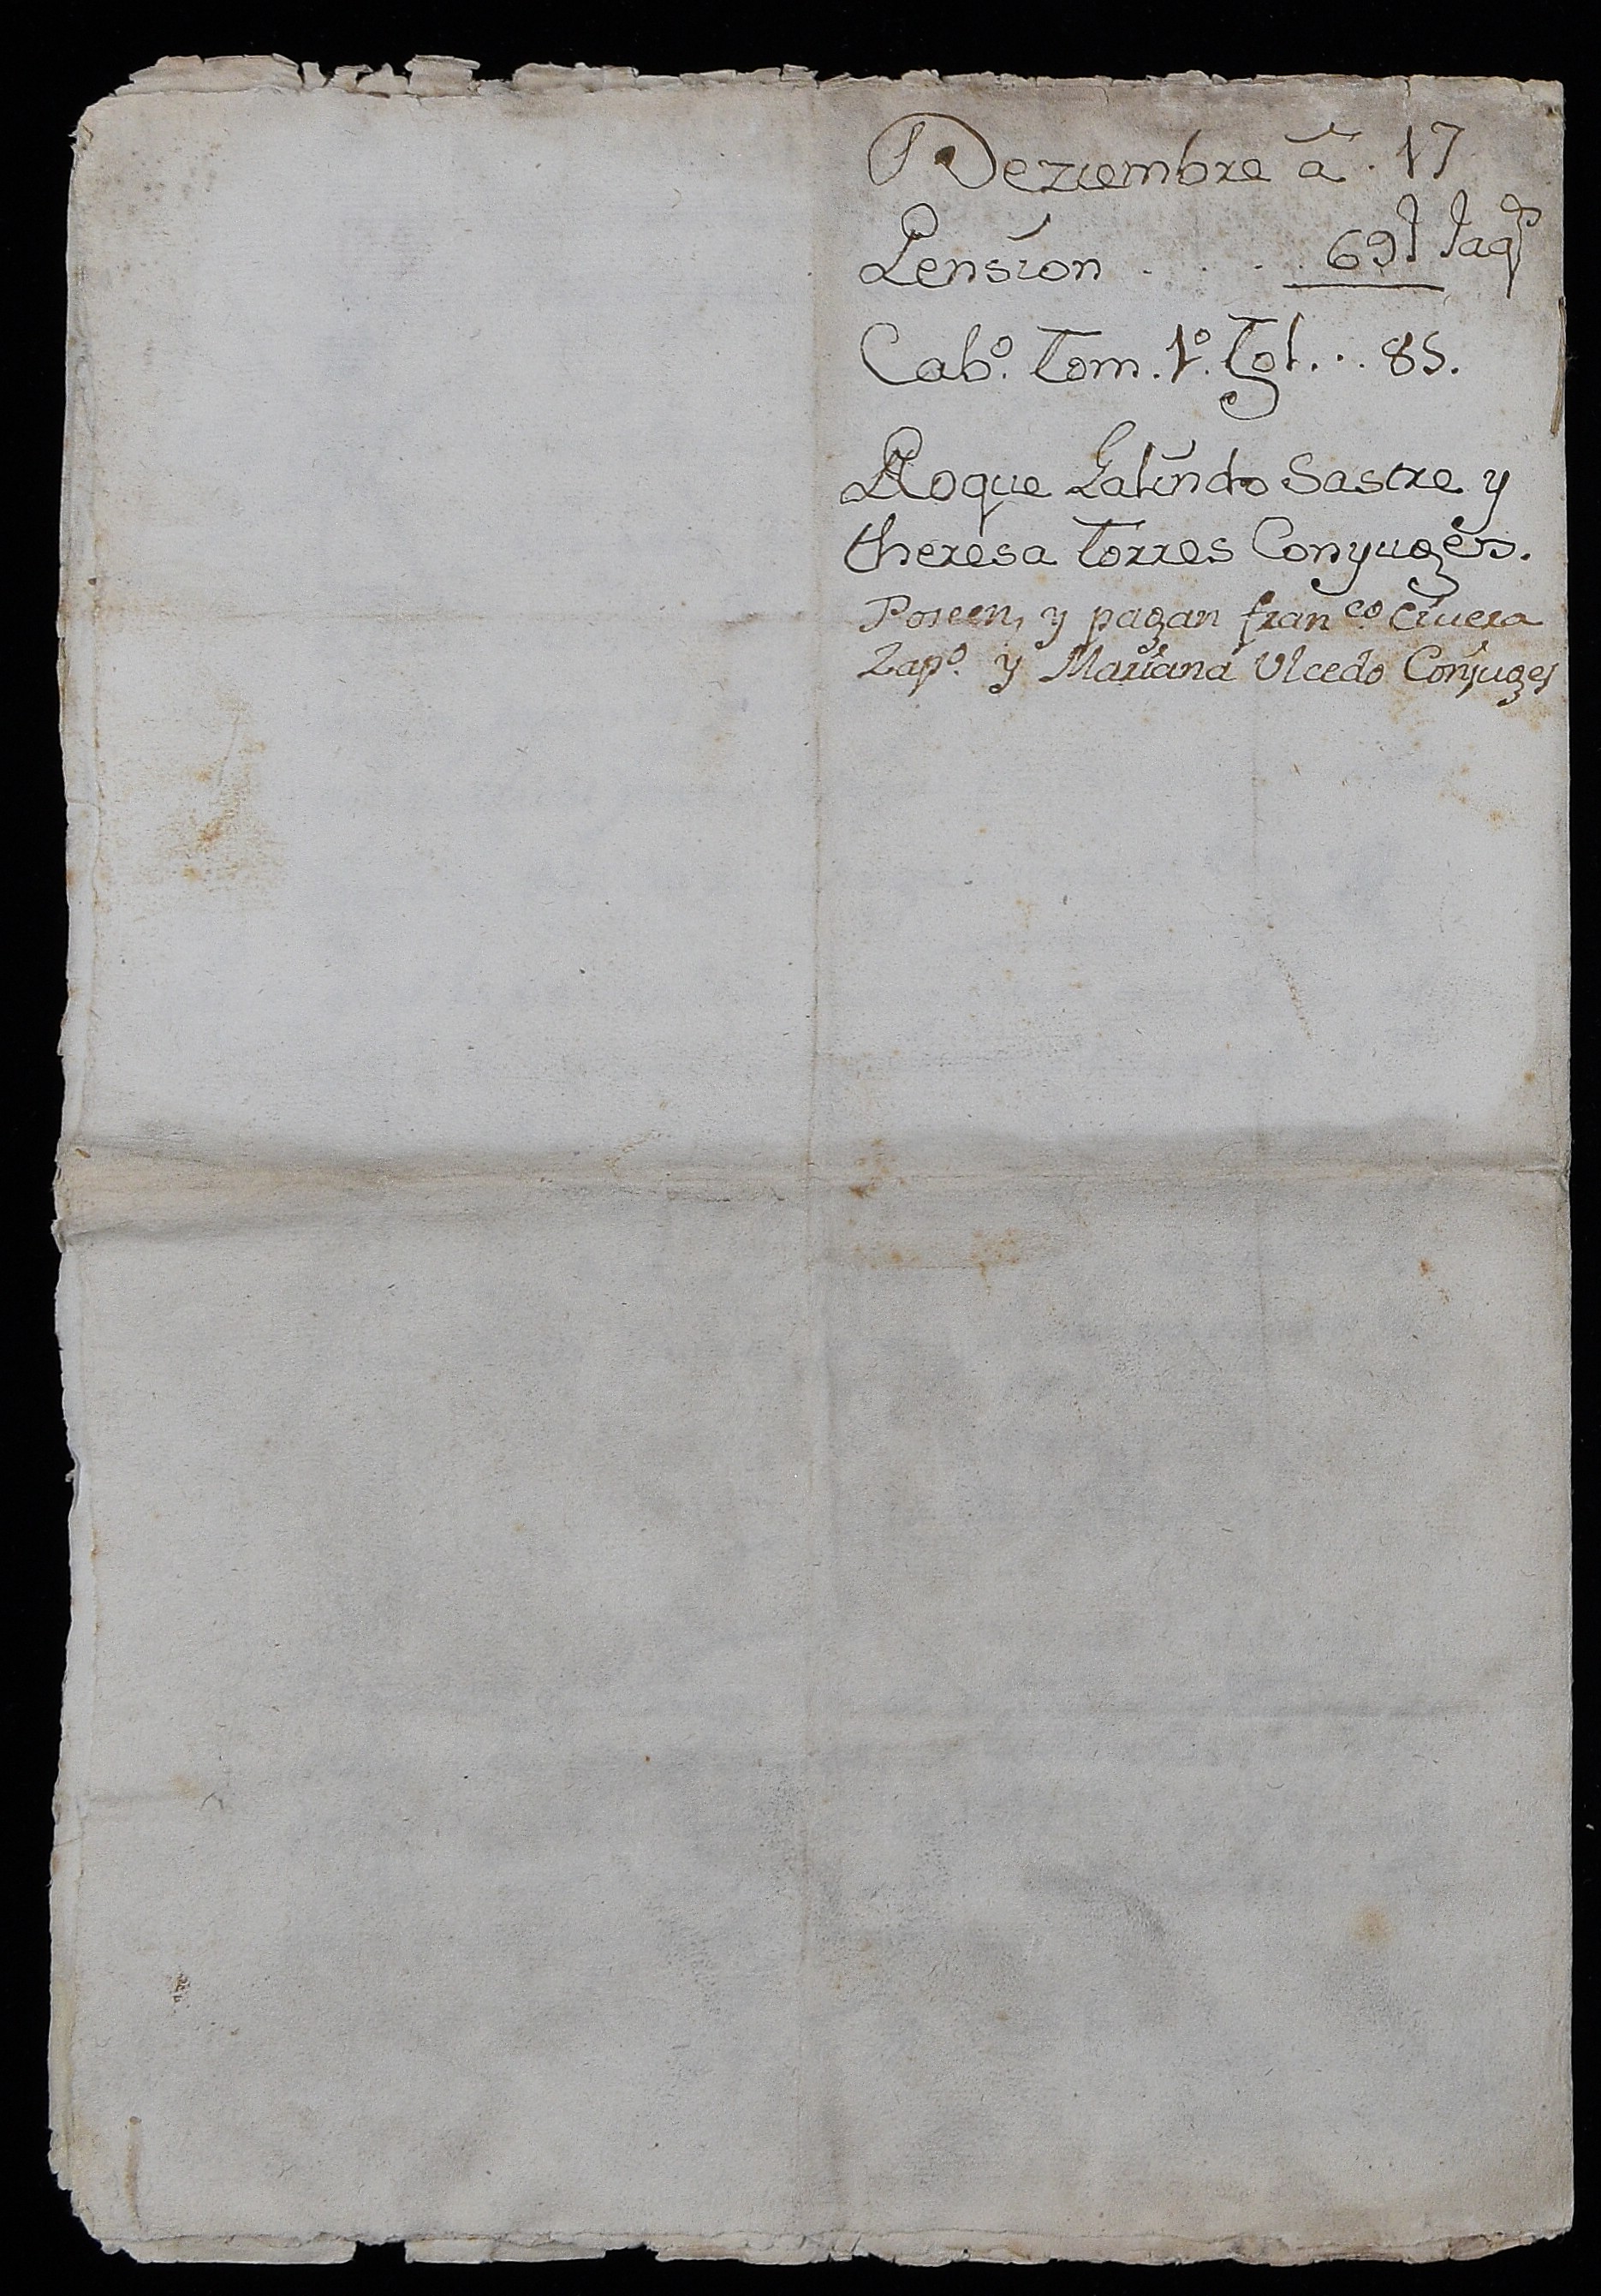 Deziembre â. 17
Pension . . . . 69 ſ Jaqˢ
Cabº. Tom. 1º. fol. . . 85.
Roque Galindo Sastre y
theresa Torres Conyuges.
Poseen, y pagan franᶜᵒ
Zapº. y Mariana Ulcedo Conjuges